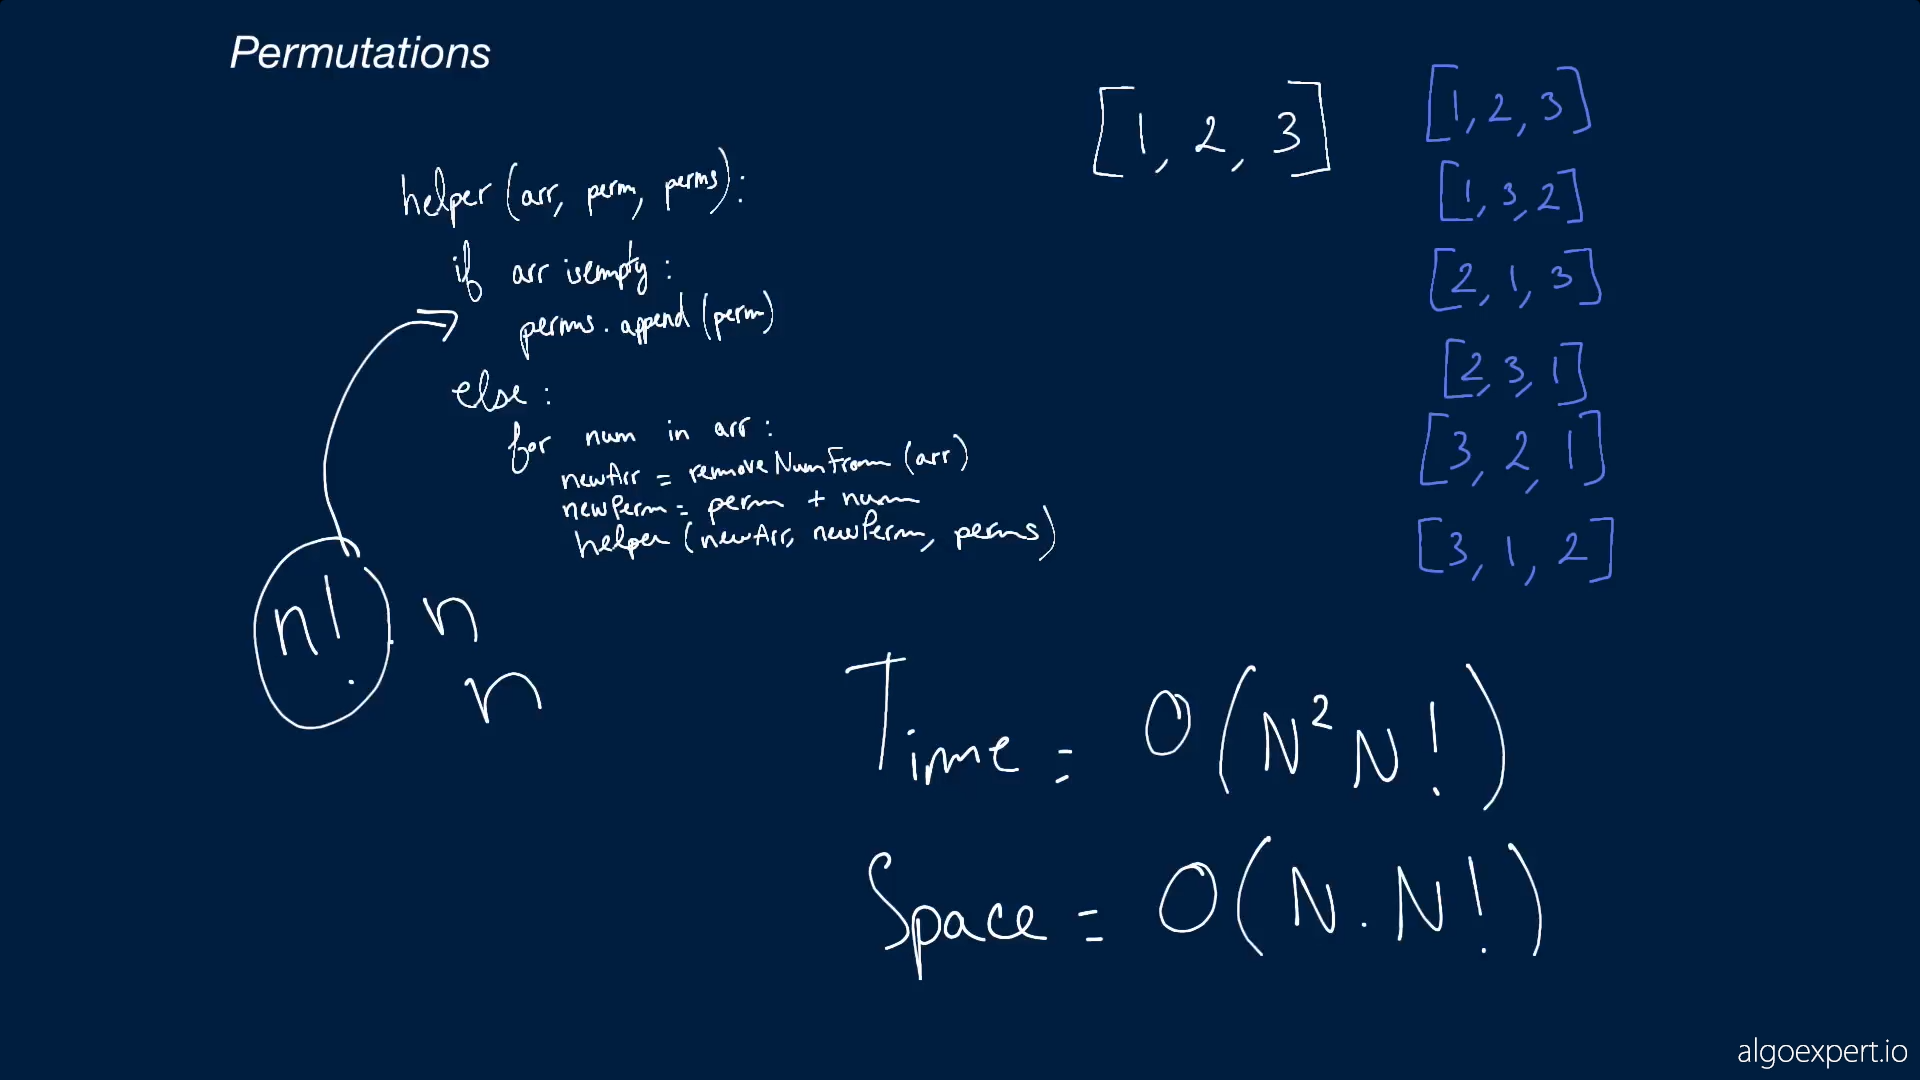 Permutations
helper (arr, perm, perms):
if arr isempty:
perms.append(perm)
else:
for num in arr:
newArr = removeNumFrom (arr)
newPerm = perm + num
helper (newArr, newPerm, perms)
n! . n
n
[1, 2, 3]
[1, 2, 3]
[1, 3, 2]
[2, 1, 3]
[2, 3, 1]
[3, 2, 1]
[3, 1, 2]
Time = O(N² N!)
Space = O(N . N!)
algoexpert.io